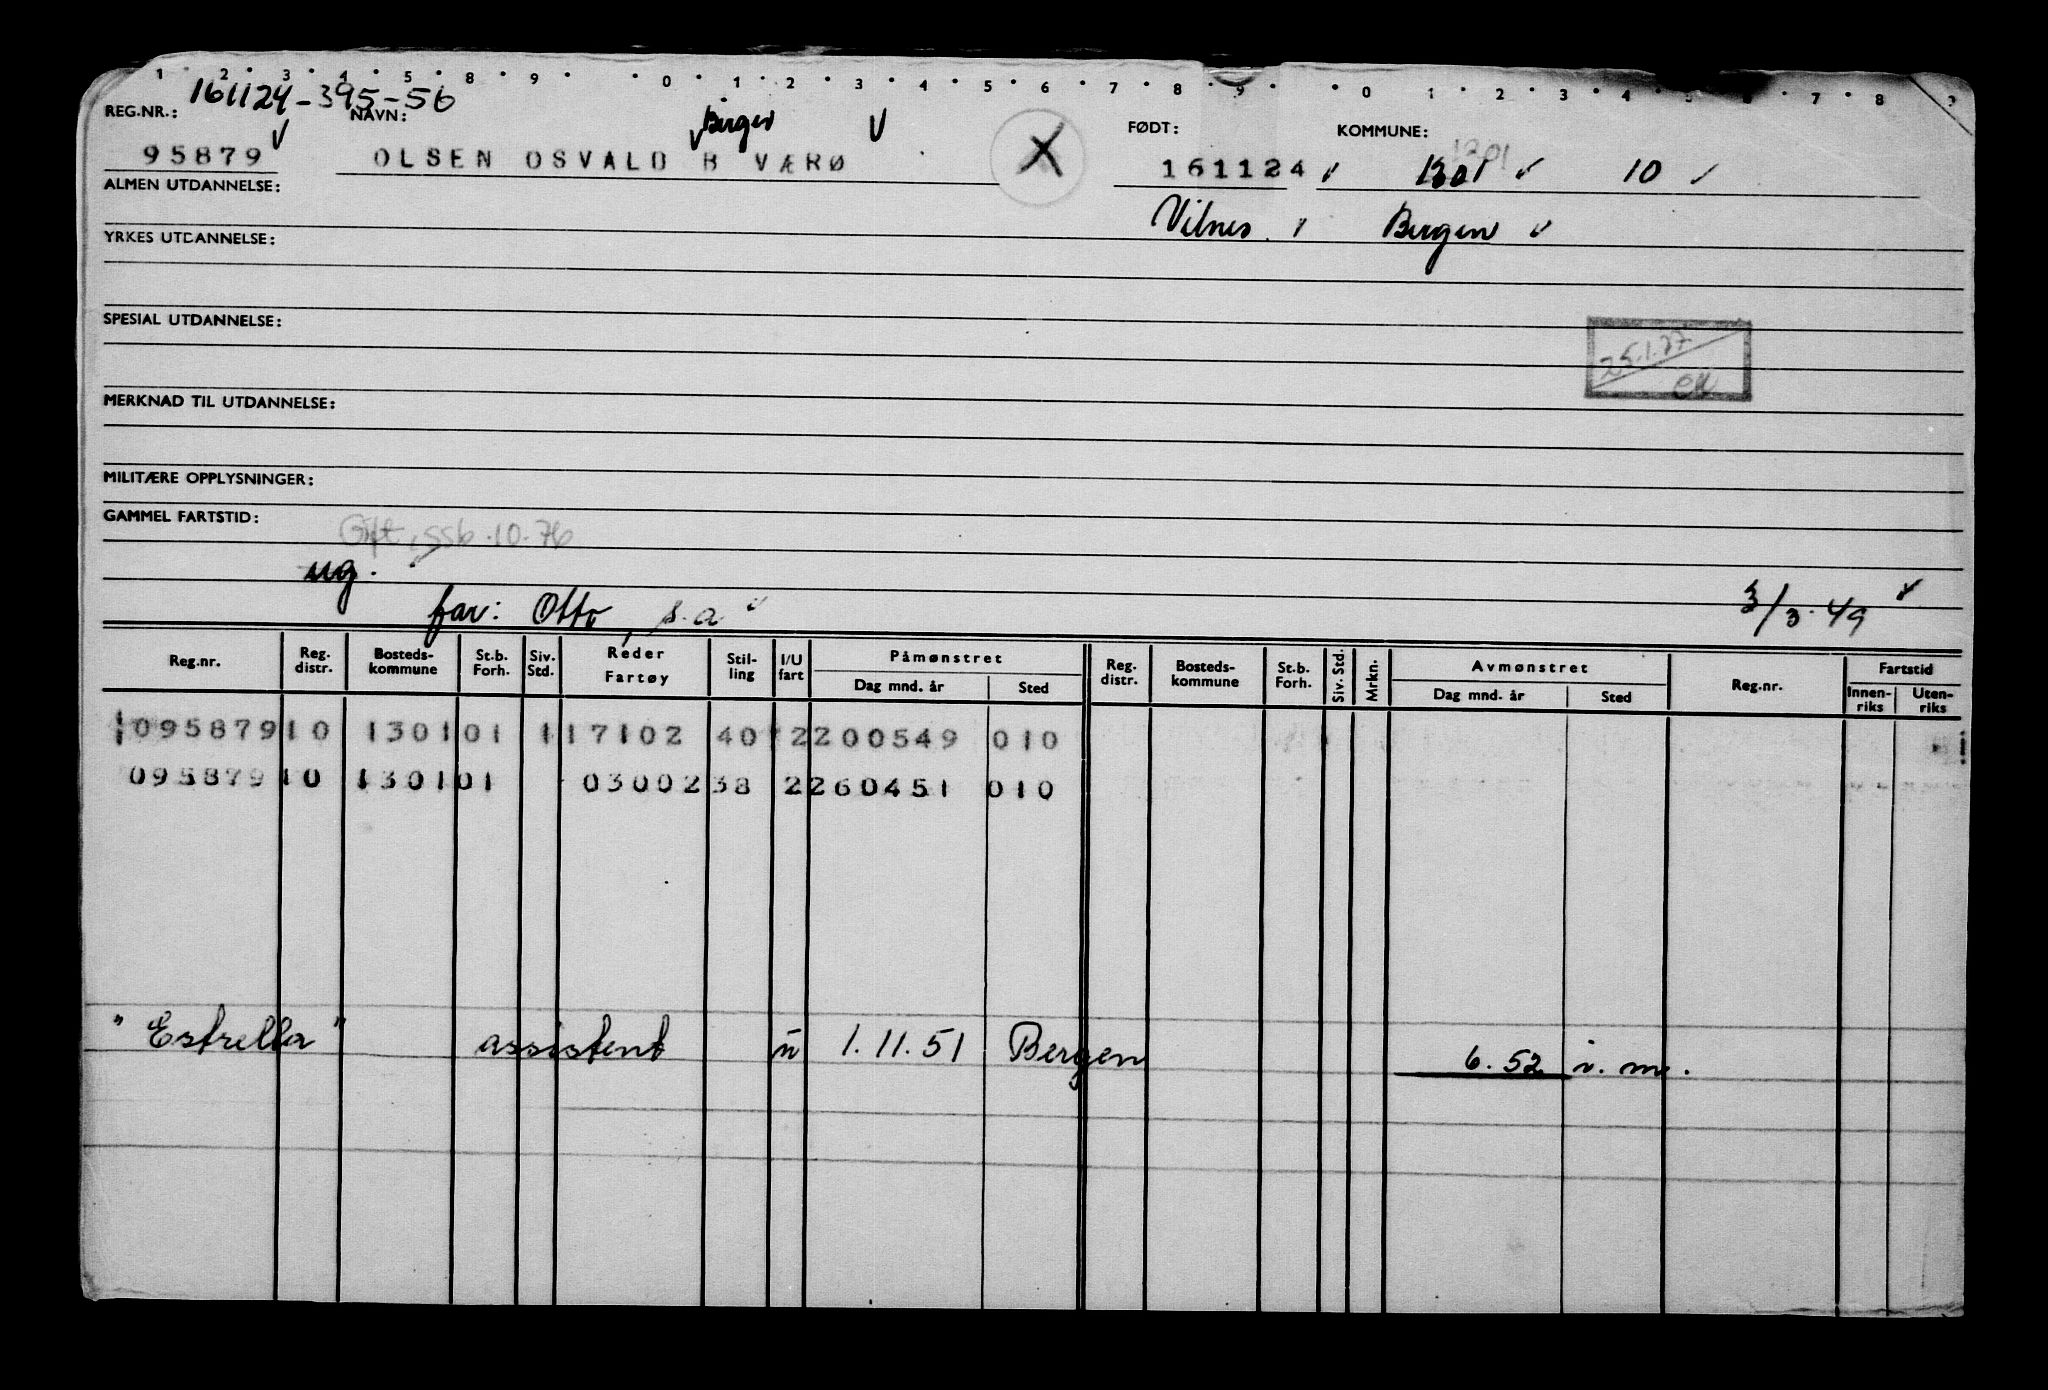 1 2 3 4 5 8 9 0 1 2 3 4 5 6 7 8 9 0 1 2 3 4 5 6 7 8 9
161124-395-56
REG.NR.: NAVN: Birger FØDT: KOMMUNE: 1201
95879 OLSEN OSVALD B VÆRØ X 161124 1301 10
ALMEN UTDANNELSE:
Vilnes Bergen
YRKES UTDANNELSE:
SPESIAL UTDANNELSE:
25.1.77
MERKNAD TIL UTDANNELSE:
MILITÆRE OPPLYSNINGER:
GAMMEL FARTSTID:
Gift, SSB.10.76
ug.
far: Otto, s.a 3/3.49
Reg.nr. Reg. distr. Bosteds-kommune St.b. Forh. Siv. Std. Reder Fartøy Stil-ling I/U fart Påmønstret Dag mnd. år Sted Reg. distr. Bosteds-kommune St.b. Forh. Siv. Std. Mrkn. Avmønstret Dag mnd. år Sted Reg.nr. Fartstid Innen-riks Uten-riks
095879 10 1301 01 1 17102 40 2 200549 010
095879 10 1301 01 03002 38 2 260451 010
"Estrella" assistent u 1.11.51 Bergen 6.52 i.m.